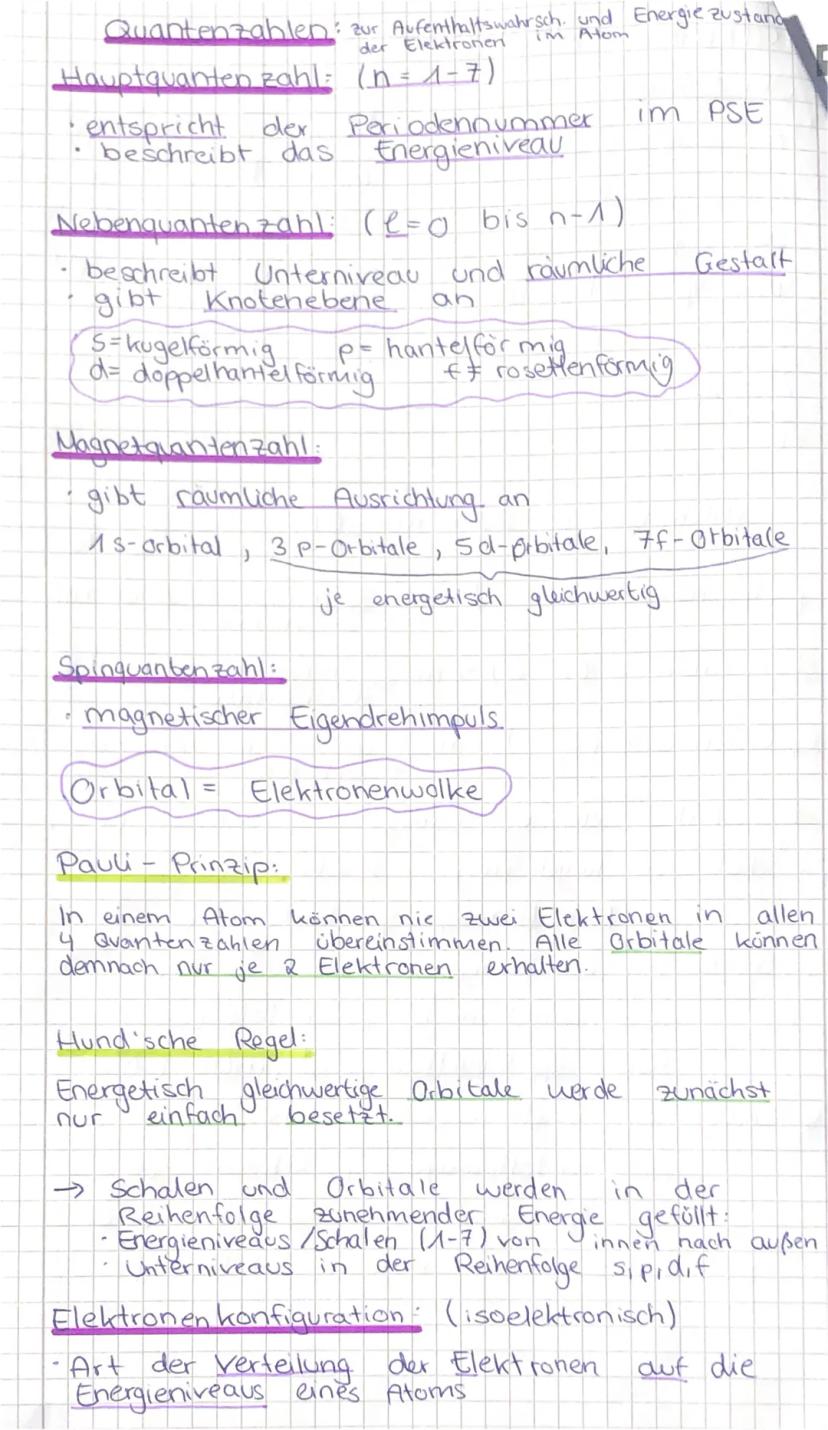 Quantenzahlen: zur Aufenthaltswahrsch. und Energiezustand
der Elektronen im Atom
Hauptquantenzahl: (n = 1-7)
· entspricht der Periodennummer im PSE
· beschreibt das Energieniveau
Nebenquantenzahl: (l=0 bis n-1)
· beschreibt Unterniveau und räumliche Gestalt
· gibt Knotenebene an
s=kugelförmig p= hantelförmig
d= doppelhantelförmig f= rosettenförmig
Magnetquantenzahl:
· gibt räumliche Ausrichtung an
1s-orbital, 3 p-Orbitale, 5d-Orbitale, 7f-Orbitale
je energetisch gleichwertig
Spinquantenzahl:
· magnetischer Eigendrehimpuls
Orbital = Elektronenwolke
Pauli - Prinzip:
In einem Atom können nie zwei Elektronen in allen
4 Quantenzahlen übereinstimmen. Alle Orbitale können
demnach nur je 2 Elektronen erhalten.
Hund'sche Regel:
Energetisch gleichwertige Orbitale werde zunächst
nur einfach besetzt.
→ Schalen und Orbitale werden in der
Reihenfolge zunehmender Energie gefüllt:
· Energieniveaus/Schalen (1-7) von innen nach außen
· Unterniveaus in der Reihenfolge s,p,d,f
Elektronenkonfiguration: (isoelektronisch)
· Art der Verteilung der Elektronen auf die
Energieniveaus eines Atoms